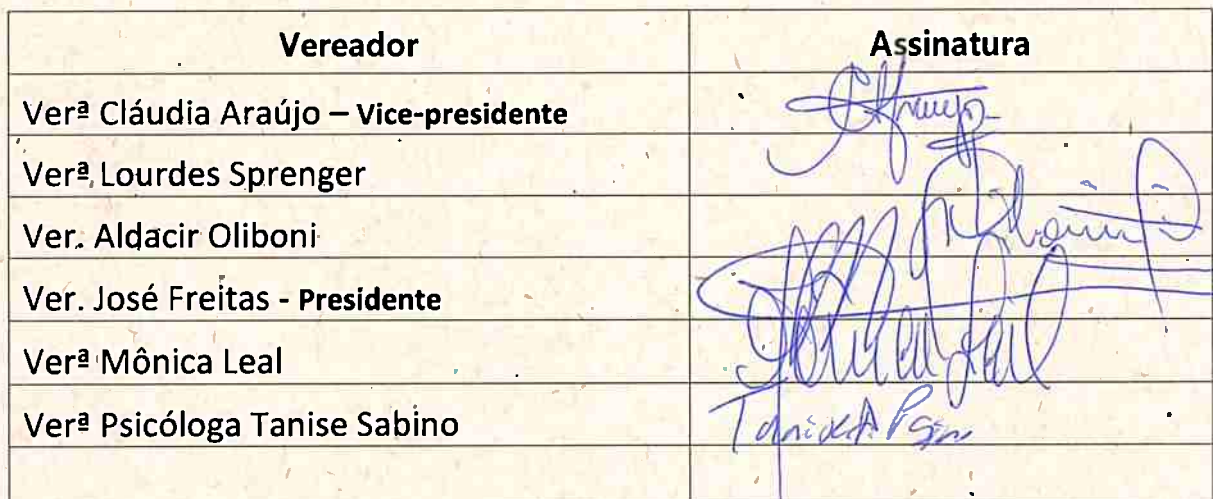 Vereador Assinatura
Verª Cláudia Araújo – Vice-presidente CAraujo
Verª Lourdes Sprenger
Ver. Aldacir Oliboni
Ver. José Freitas - Presidente
Verª Mônica Leal
Verª Psicóloga Tanise Sabino